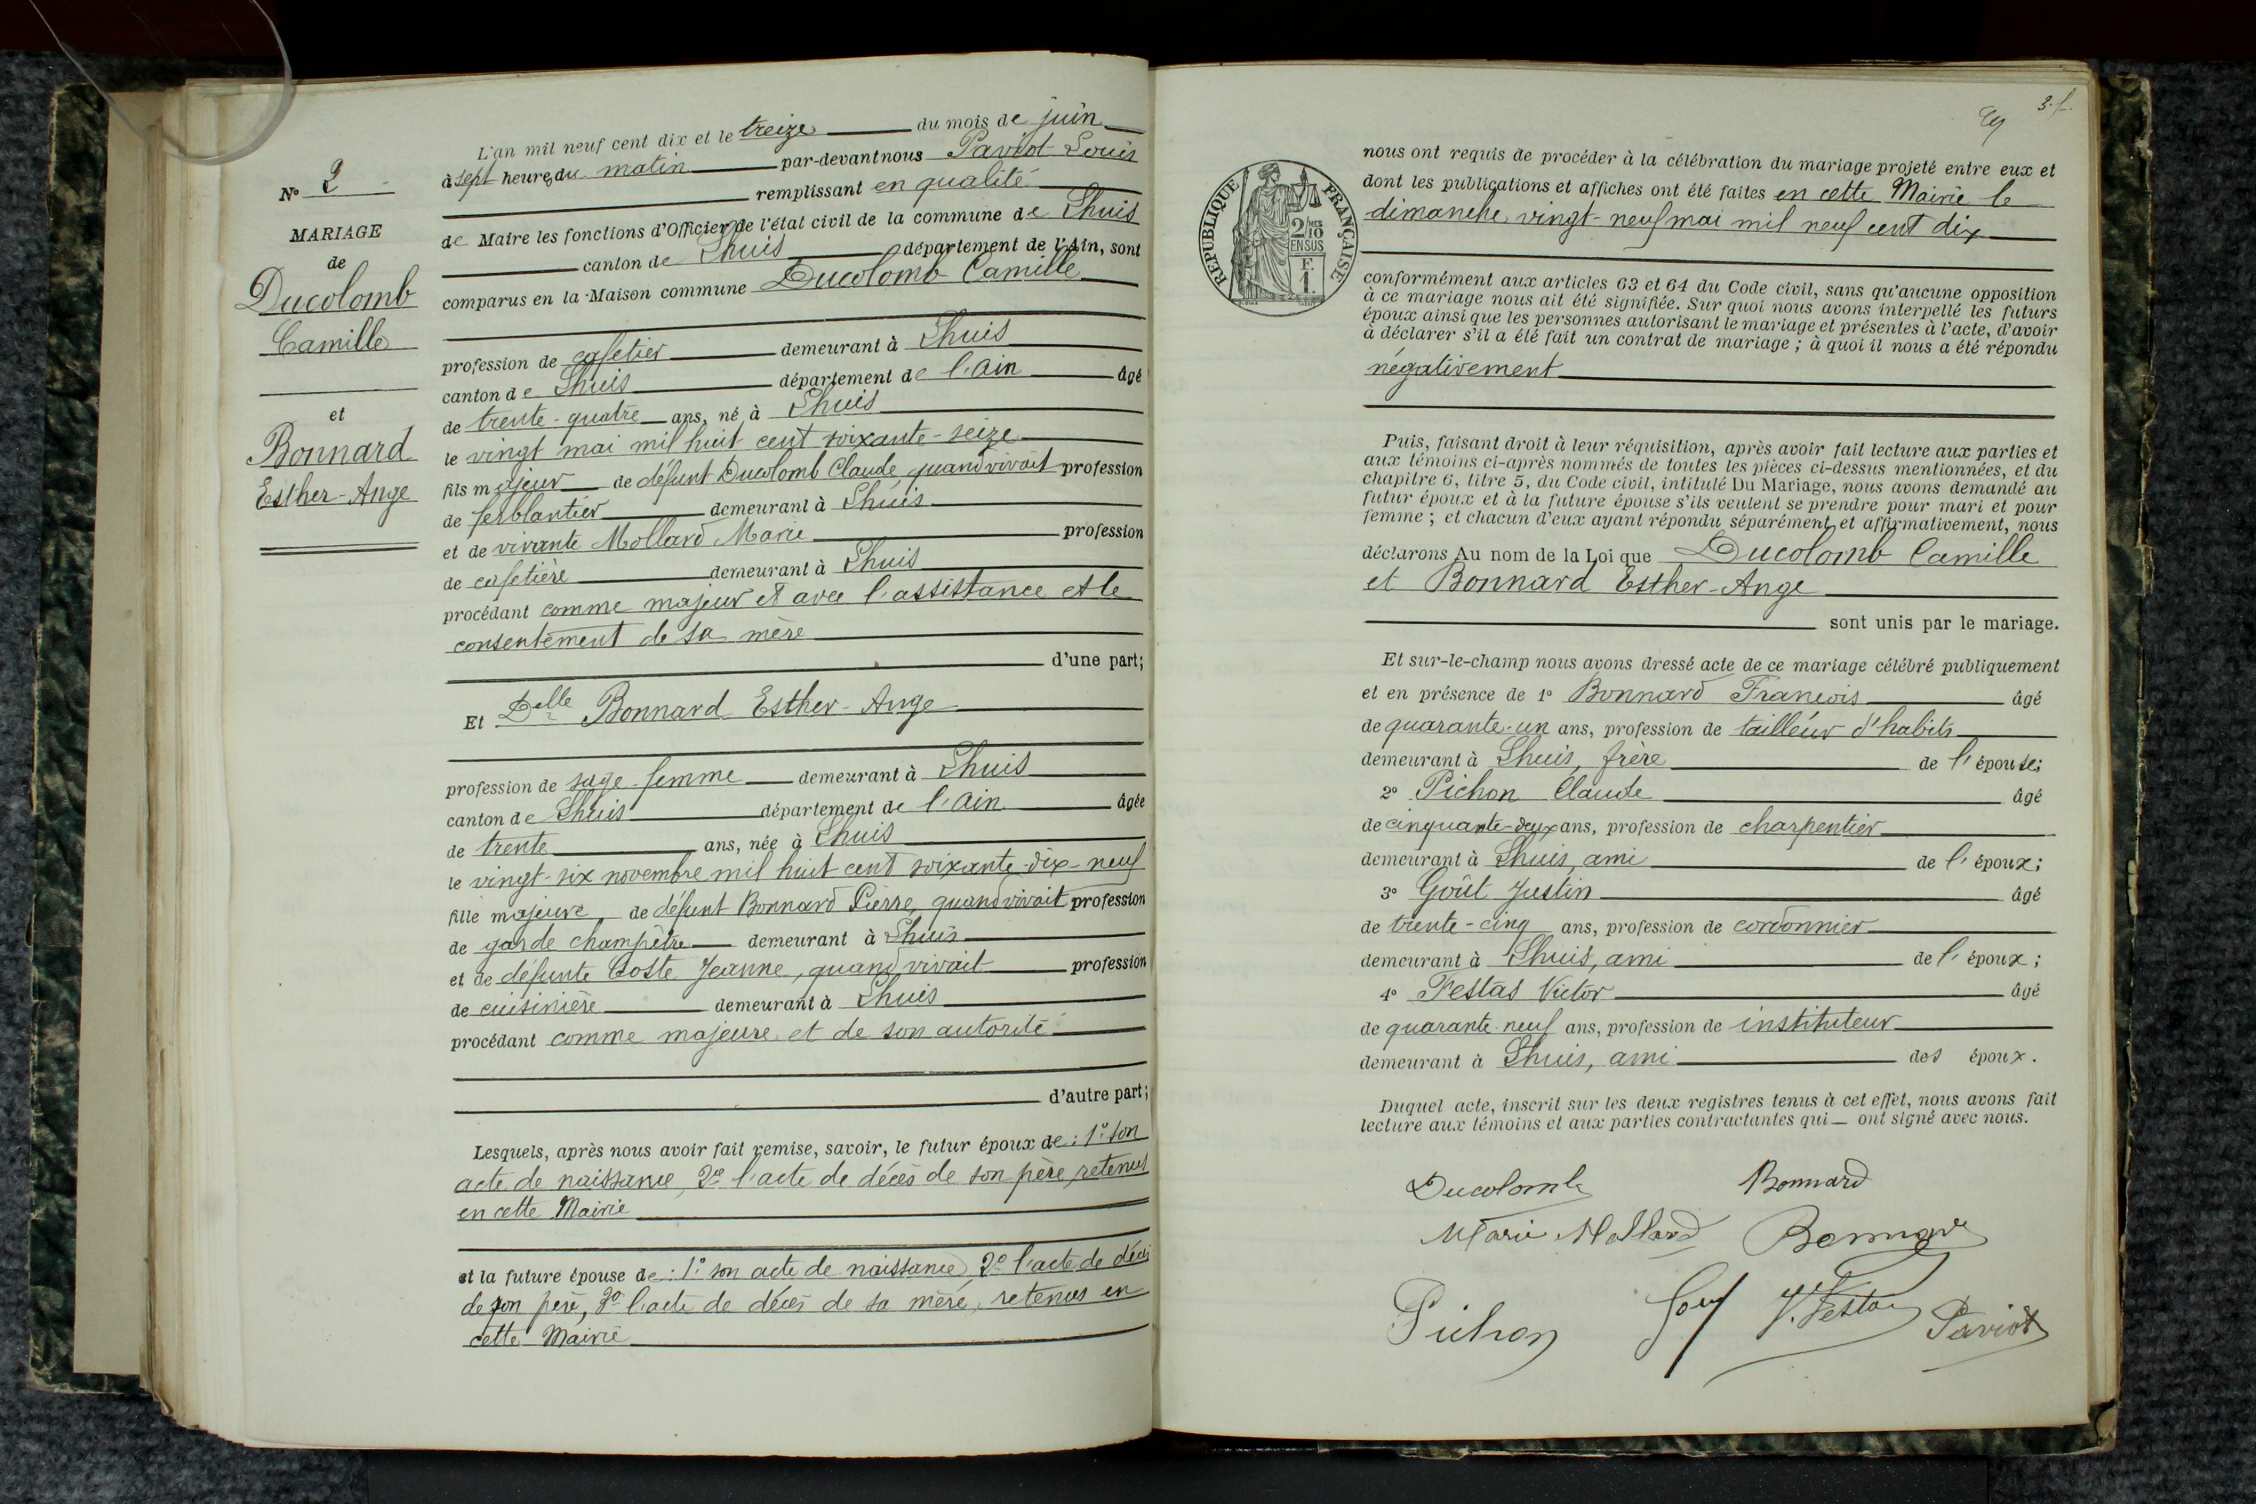 N° 2
MARIAGE
de
Ducolomb
Camille
et
Bonnard
Esther-Ange
L'an mil neuf cent dix et le treize du mois de juin
à sept heures du matin par-devant nous Paviot Louis
remplissant en qualité
de Maire les fonctions d'Officier de l'état civil de la commune de Lhuis
canton de Lhuis département de l'Ain, sont
comparus en la Maison commune Ducolomb Camille
profession de cafetier demeurant à Lhuis
canton de Lhuis département de l'Ain âgé
de trente-quatre ans, né à Lhuis
le vingt mai mil huit cent soixante-seize
fils majeur de défunt Ducolomb Claude quand vivait profession
de ferblantier demeurant à Lhuis
et de vivante Mollard Marie profession
de cafetière demeurant à Lhuis
procédant comme majeur et avec l'assistance et le
consentement de sa mère
d'une part;
Et Delle Bonnard Esther-Ange
profession de sage-femme demeurant à Lhuis
canton de Lhuis département de l'Ain âgée
de trente ans, née à Lhuis
le vingt-six novembre mil huit cent soixante-dix-neuf
fille majeure de défunt Bonnard Pierre, quand vivait profession
de garde champêtre demeurant à Lhuis
et de défunte Coste Jeanne, quand vivait profession
de cuisinière demeurant à Lhuis
procédant comme majeure et de son autorité
d'autre part;
Lesquels, après nous avoir fait remise, savoir, le futur époux de : 1° son
acte de naissance, 2° l'acte de décès de son père, retenus
en cette Mairie
et la future épouse de : 1° son acte de naissance, 2° l'acte de décès
de son père, 3° l'acte de décès de sa mère, retenus en
cette Mairie
3.f.
RÉPUBLIQUE FRANÇAISE
2/10
EN SUS
F.
1.
nous ont requis de procéder à la célébration du mariage projeté entre eux et
dont les publications et affiches ont été faites en cette Mairie le
dimanche vingt-neuf mai mil neuf cent dix
conformément aux articles 63 et 64 du Code civil, sans qu'aucune opposition
à ce mariage nous ait été signifiée. Sur quoi nous avons interpellé les futurs
époux ainsi que les personnes autorisant le mariage et présentes à l'acte, d'avoir
à déclarer s'il a été fait un contrat de mariage ; à quoi il nous a été répondu
négativement
Puis, faisant droit à leur réquisition, après avoir fait lecture aux parties et
aux témoins ci-après nommés de toutes les pièces ci-dessus mentionnées, et du
chapitre 6, titre 5, du Code civil, intitulé Du Mariage, nous avons demandé au
futur époux et à la future épouse s'ils veulent se prendre pour mari et pour
femme ; et chacun d'eux ayant répondu séparément et affirmativement, nous
déclarons Au nom de la Loi que Ducolomb Camille
et Bonnard Esther-Ange
sont unis par le mariage.
Et sur-le-champ nous avons dressé acte de ce mariage célébré publiquement
et en présence de 1° Bonnard François âgé
de quarante-un ans, profession de tailleur d'habits
demeurant à Lhuis, frère de l'épouse;
2° Pichon Claude âgé
de cinquante-deux ans, profession de charpentier
demeurant à Lhuis, ami de l'époux;
3° Goût Justin âgé
de trente-cinq ans, profession de cordonnier
demeurant à Lhuis, ami de l'époux;
4° Festas Victor âgé
de quarante-neuf ans, profession de instituteur
demeurant à Lhuis, ami des époux.
Duquel acte, inscrit sur les deux registres tenus à cet effet, nous avons fait
lecture aux témoins et aux parties contractantes qui ont signé avec nous.
Ducolomb Bonnard
Marie Mollard Bonnard
Pichon V. Festas Paviot